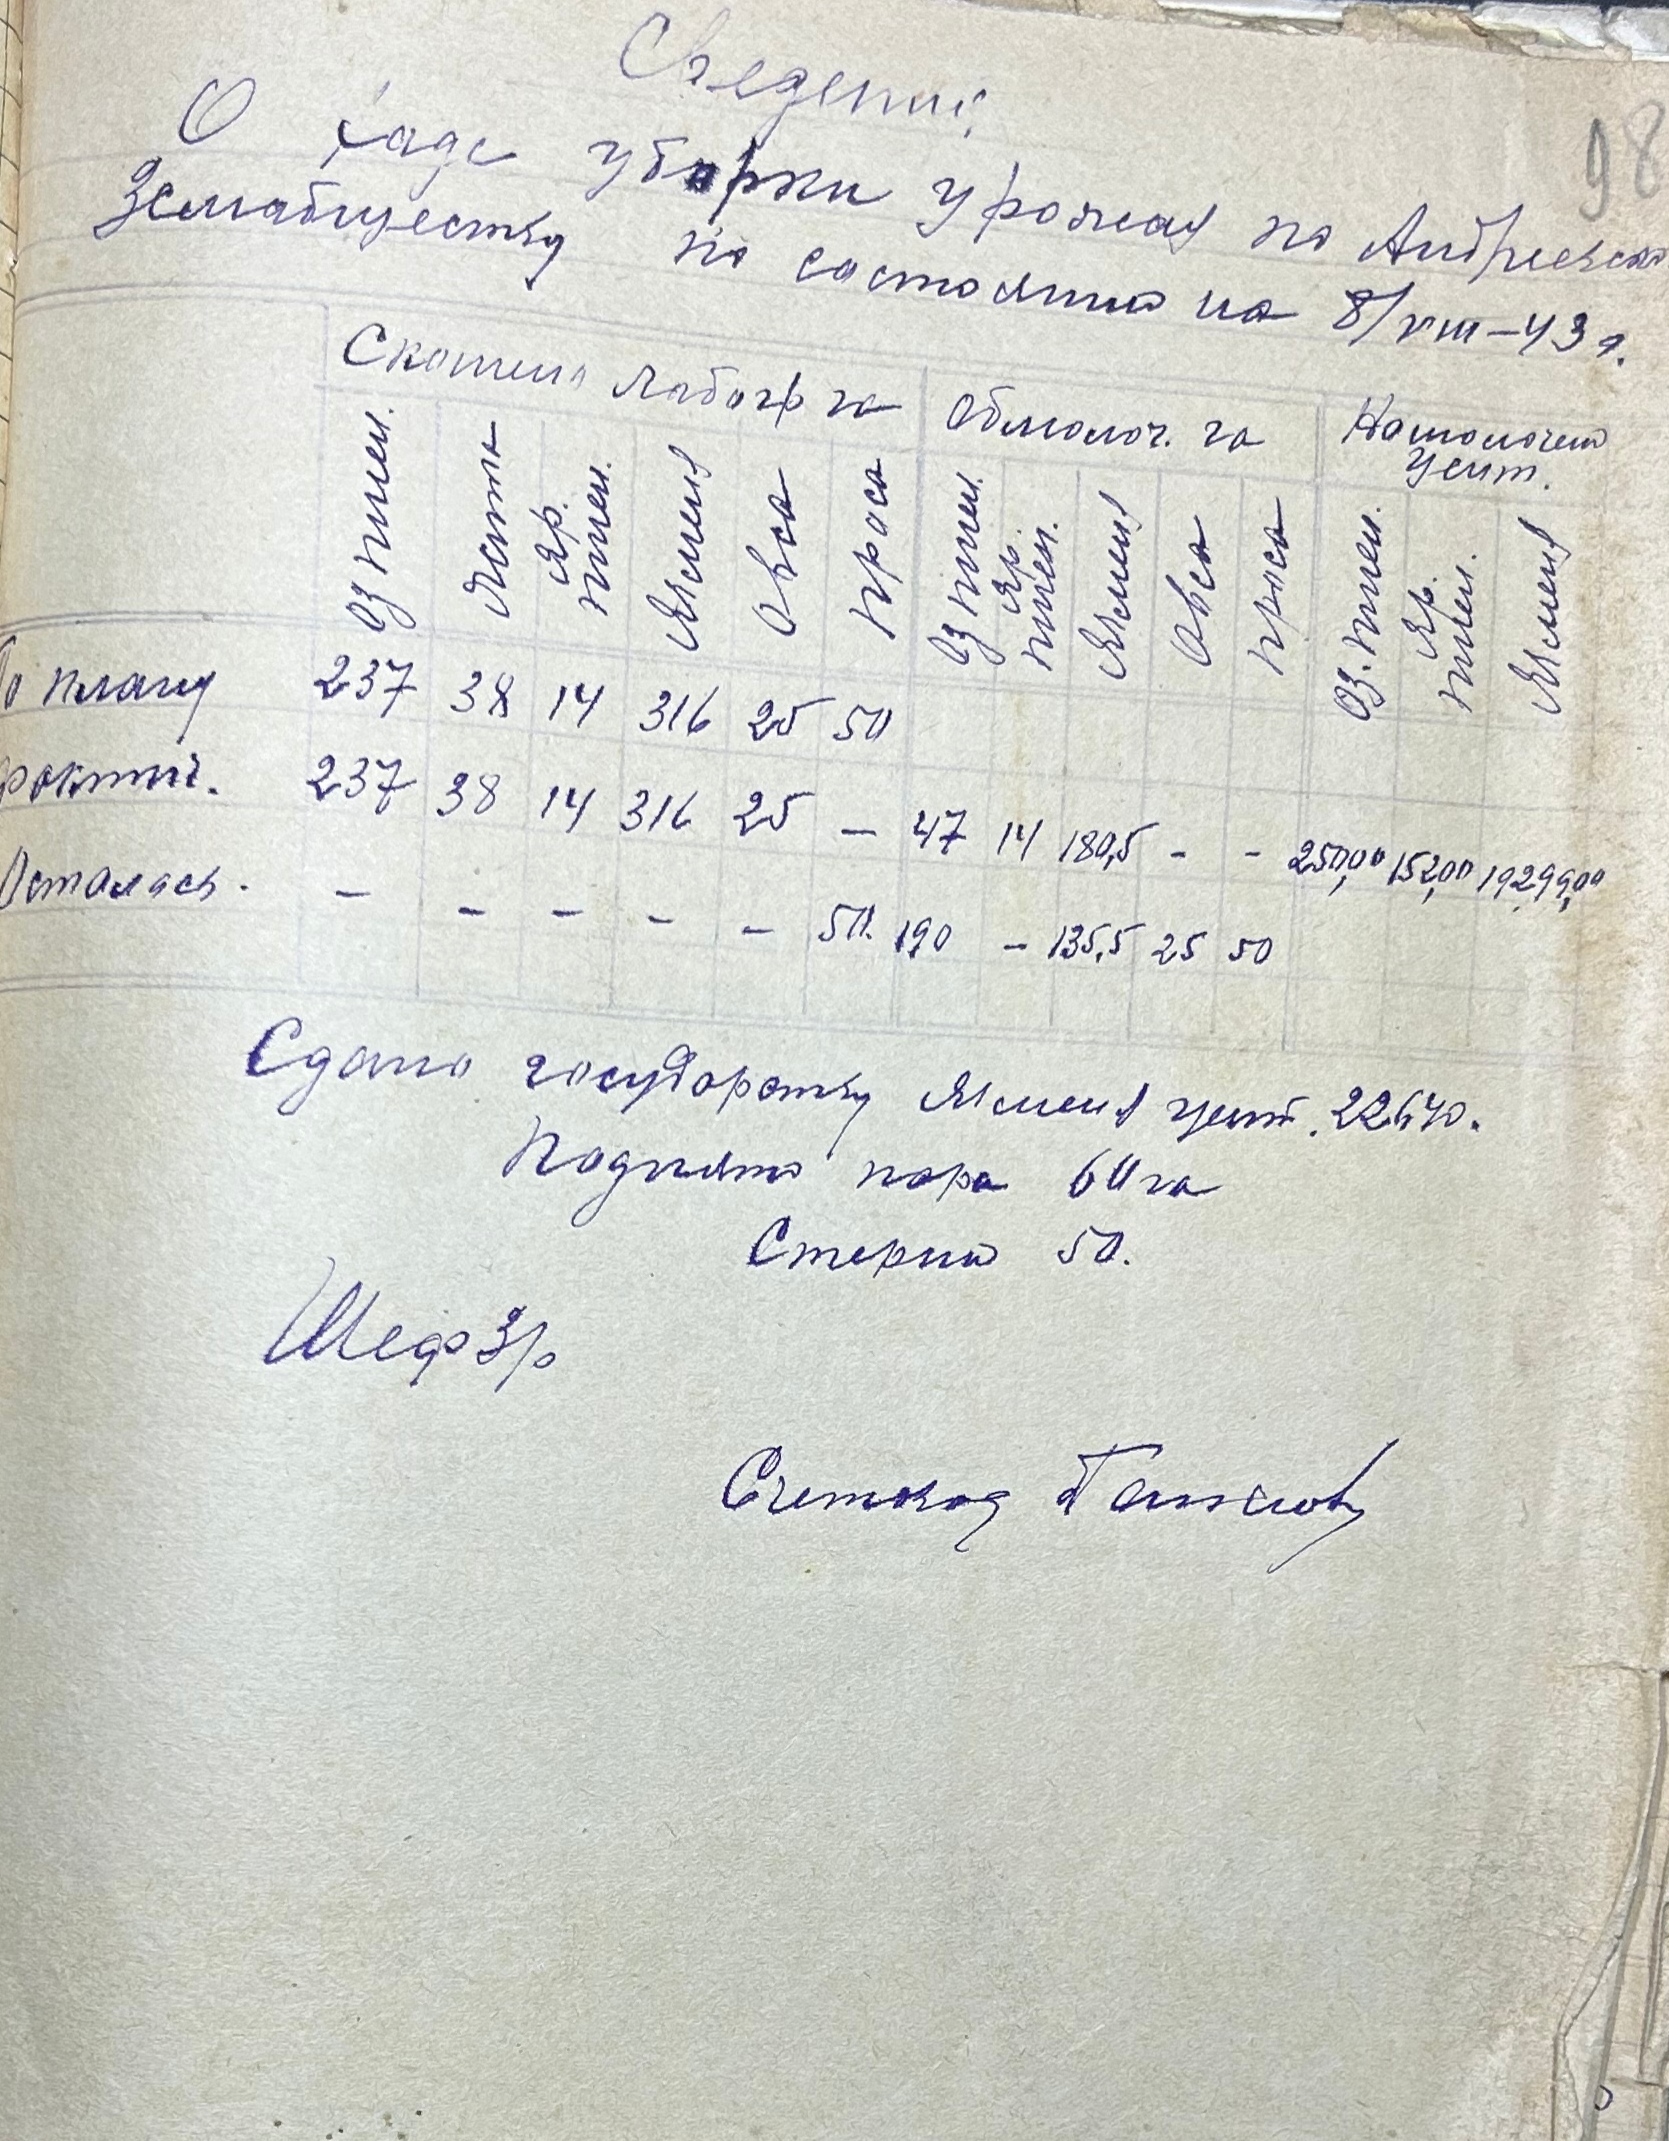 Сведения
98
О ходе уборки урожая по Андреевско
Земобществу по состоянию на 8/VIII-43 г.
Скошено лабогр га Обмолоч. га Намолочено цент.
Оз пшен. Жита Яр. пшен. Ячменя Овса Проса Оз пшен. Яр. пшен. Ячменя Овса проса Оз. пшен. Яр. пшен. Ячменя
По плану 237 38 14 316 25 50
фактич. 237 38 14 316 25 – 47 14 180,5 - - 250,00 152,00 1929,00
Осталась. – – – – – 50. 190 – 135,5 25 50
Сдано государству Ячменя цент. 22640.
Поднято пара 60 га
Стерни 50.
Шеф З/р
Счетовод